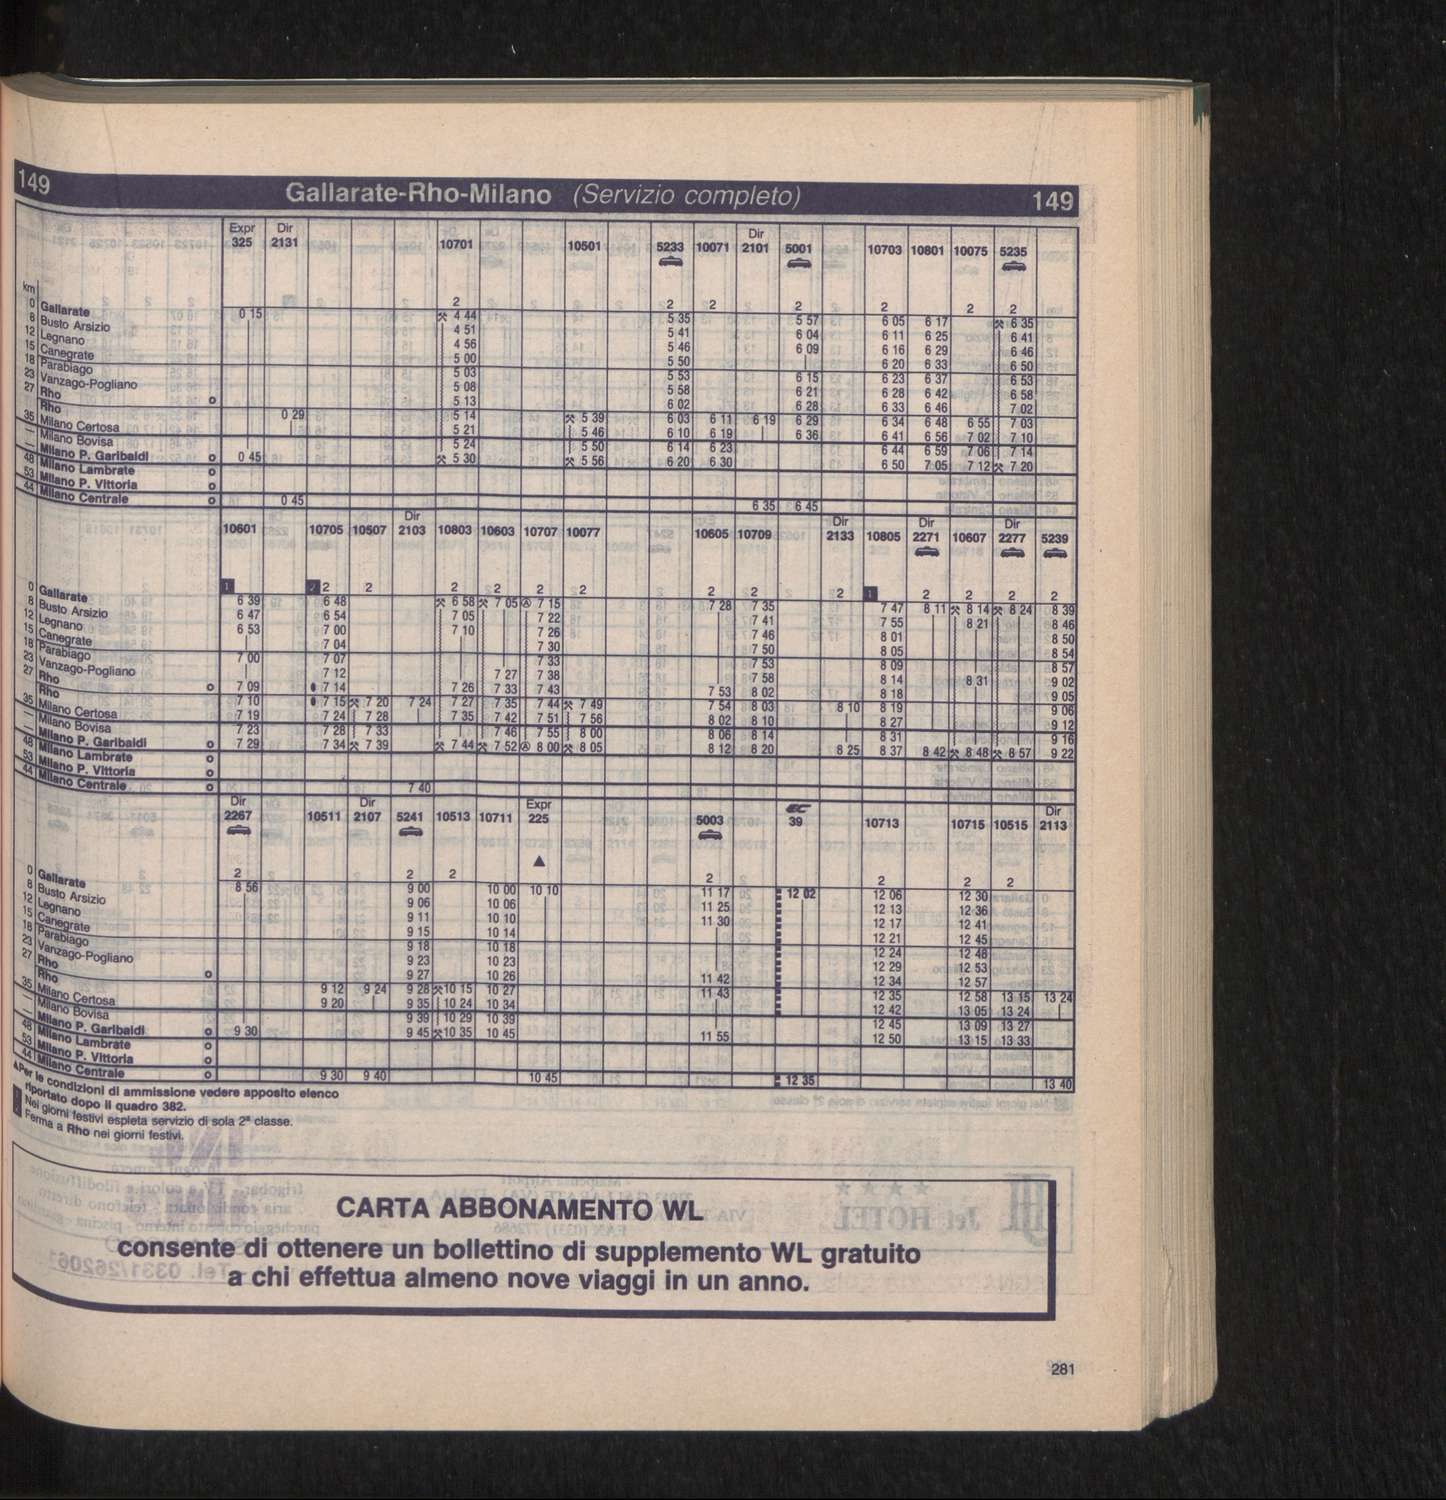 149 Gallarate-Rho-Milano (Servizio completo) 149
Expr Dir Dir
325 2131 10701 10501 5233 10071 2101 5001 10703 10801 10075 5235
km 2 2 2 2 2 2 2
0 Gallarate 0 15 4 44 5 35 5 57 6 05 6 17 6 35
8 Busto Arsizio 4 51 5 41 6 04 6 11 6 25 6 41
12 Legnano 4 56 5 46 6 09 6 16 6 29 6 46
15 Canegrate 5 00 5 50 6 20 6 33 6 50
18 Parabiago 5 03 5 53 6 15 6 23 6 37 6 53
23 Vanzago-Pogliano 5 08 5 58 6 21 6 28 6 42 6 58
27 Rho o 5 13 6 02 6 28 6 33 6 46 7 02
Rho 0 29 5 14 5 39 6 03 6 11 6 19 6 29 6 34 6 48 6 55 7 03
35 Milano Certosa 5 21 5 46 6 10 6 19 6 36 6 41 6 56 7 02 7 10
— Milano Bovisa 5 24 5 50 6 14 6 23 6 44 6 59 7 06 7 14
— Milano P. Garibaldi o 0 45 5 30 5 56 6 20 6 30 6 50 7 05 7 12 7 20
48 Milano Lambrate o
53 Milano P. Vittoria o
44 Milano Centrale o 0 45 6 35 6 45
Dir Dir Dir Dir
10601 10705 10507 2103 10803 10603 10707 10077 10605 10709 2133 10805 2271 10607 2277 5239
1 2 2 2 2 2 2 2 2 2 2 1 2 2 2 2
0 Gallarate 6 39 6 48 6 58 7 05 7 15 7 28 7 35 7 47 8 11 8 14 8 24 8 39
8 Busto Arsizio 6 47 6 54 7 05 7 22 7 41 7 55 8 21 8 46
12 Legnano 6 53 7 00 7 10 7 26 7 46 8 01 8 50
15 Canegrate 7 04 7 30 7 50 8 05 8 54
18 Parabiago 7 00 7 07 7 33 7 53 8 09 8 57
23 Vanzago-Pogliano 7 12 7 27 7 38 7 58 8 14 8 31 9 02
27 Rho o 7 09 7 14 7 26 7 33 7 43 7 53 8 02 8 18 9 05
Rho 7 10 7 15 7 20 7 24 7 27 7 35 7 44 7 49 7 54 8 03 8 10 8 19 9 06
35 Milano Certosa 7 19 7 24 7 28 7 35 7 42 7 51 7 56 8 02 8 10 8 27 9 12
— Milano Bovisa 7 23 7 28 7 33 7 46 7 55 8 00 8 06 8 14 8 31 9 16
— Milano P. Garibaldi o 7 29 7 34 7 39 7 44 7 52 8 00 8 05 8 12 8 20 8 25 8 37 8 42 8 48 8 57 9 22
48 Milano Lambrate o
53 Milano P. Vittoria o
44 Milano Centrale o 7 40
Dir Dir Expr EC Dir
2267 10511 2107 5241 10513 10711 225 5003 39 10713 10715 10515 2113
▲
2 2 2 2 2 2 2
0 Gallarate 8 56 9 00 10 00 10 10 11 17 12 02 12 06 12 30
8 Busto Arsizio 9 06 10 06 11 25 12 13 12 36
12 Legnano 9 11 10 10 11 30 12 17 12 41
15 Canegrate 9 15 10 14 12 21 12 45
18 Parabiago 9 18 10 18 12 24 12 48
23 Vanzago-Pogliano 9 23 10 23 12 29 12 53
27 Rho o 9 27 10 26 11 42 12 34 12 57
Rho 9 12 9 24 9 28 10 15 10 27 11 43 12 35 12 58 13 15 13 24
35 Milano Certosa 9 20 9 35 10 24 10 34 12 42 13 05 13 24
— Milano Bovisa 9 39 10 29 10 39 12 45 13 09 13 27
— Milano P. Garibaldi o 9 30 9 45 10 35 10 45 11 55 12 50 13 15 13 33
48 Milano Lambrate o
53 Milano P. Vittoria o
44 Milano Centrale o 9 30 9 40 10 45 12 35 13 40
▲Per le condizioni di ammissione vedere apposito elenco
riportato dopo il quadro 382.
Nei giorni festivi espleta servizio di sola 2ª classe.
Ferma a Rho nei giorni festivi.
CARTA ABBONAMENTO WL
consente di ottenere un bollettino di supplemento WL gratuito
a chi effettua almeno nove viaggi in un anno.
281